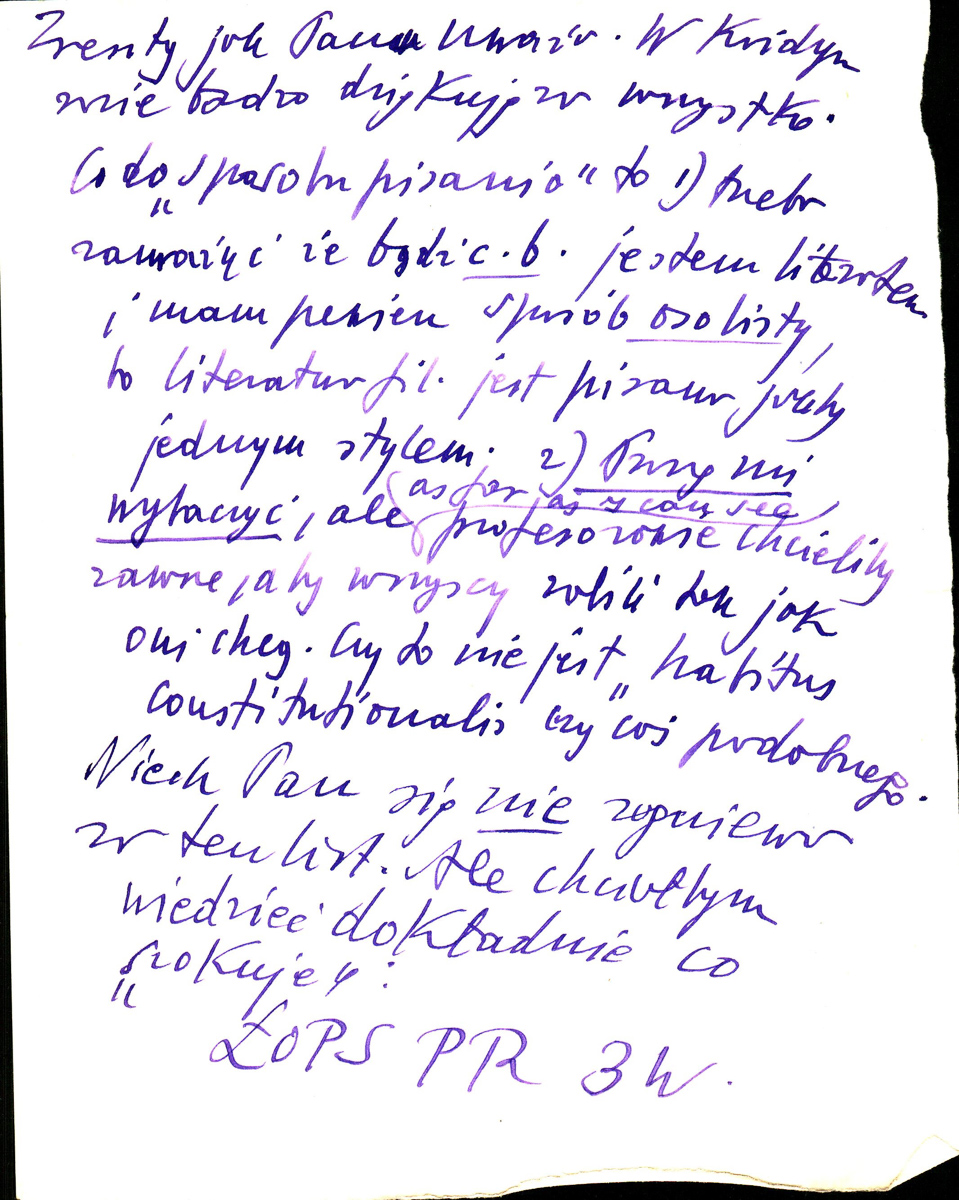 Zresztą jak Pan uważa. W każdym
razie bardzo dziękuję za wszystko.
Co do „sposobu pisania" to 1) trzeba
zauważyć że bądź c.b. jestem literatem
i mam pewien sposób osobisty,
to literatura fil. jest pisana jakby
jednym stylem. 2) Proszę mi
wybaczyć, ale (as far as I can see)
profesorowie chcieliby
zawsze, aby wszyscy robili tak jak
oni chcą. Czy to nie jest „habitus
constitutionalis czy coś podobnego.
Niech Pan się nie zagniewa
za ten list. Ale chciałbym
wiedzieć dokładnie co
„szokuje":
ŁOPS PR 3W.